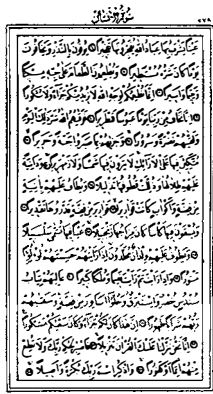 سورة الإنسان
عَيْنًا يَشْرَبُ بِهَا عِبَادُ اللَّهِ يُفَجِّرُونَهَا تَفْجِيرًا يُوفُونَ بِالنَّذْرِ وَيَخَافُونَ
يَوْمًا كَانَ شَرُّهُ مُسْتَطِيرًا وَيُطْعِمُونَ الطَّعَامَ عَلَى حُبِّهِ مِسْكِينًا
وَيَتِيمًا وَأَسِيرًا إِنَّمَا نُطْعِمُكُمْ لِوَجْهِ اللَّهِ لَا نُرِيدُ مِنْكُمْ جَزَاءً وَلَا شُكُورًا
إِنَّا نَخَافُ مِنْ رَبِّنَا يَوْمًا عَبُوسًا قَمْطَرِيرًا فَوَقَاهُمُ اللَّهُ شَرَّ ذَلِكَ الْيَوْمِ
وَلَقَّاهُمْ نَضْرَةً وَسُرُورًا وَجَزَاهُمْ بِمَا صَبَرُوا جَنَّةً وَحَرِيرًا
مُتَّكِئِينَ فِيهَا عَلَى الْأَرَائِكِ لَا يَرَوْنَ فِيهَا شَمْسًا وَلَا زَمْهَرِيرًا وَدَانِيَةً
عَلَيْهِمْ ظِلَالُهَا وَذُلِّلَتْ قُطُوفُهَا تَذْلِيلًا وَيُطَافُ عَلَيْهِمْ بِآنِيَةٍ
مِنْ فِضَّةٍ وَأَكْوَابٍ كَانَتْ قَوَارِيرَا قَوَارِيرَ مِنْ فِضَّةٍ قَدَّرُوهَا تَقْدِيرًا
وَيُسْقَوْنَ فِيهَا كَأْسًا كَانَ مِزَاجُهَا زَنْجَبِيلًا عَيْنًا فِيهَا تُسَمَّى سَلْسَبِيلًا
وَيَطُوفُ عَلَيْهِمْ وِلْدَانٌ مُخَلَّدُونَ إِذَا رَأَيْتَهُمْ حَسِبْتَهُمْ لُؤْلُؤًا
مَنْثُورًا وَإِذَا رَأَيْتَ ثَمَّ رَأَيْتَ نَعِيمًا وَمُلْكًا كَبِيرًا عَالِيَهُمْ ثِيَابُ
سُنْدُسٍ خُضْرٌ وَإِسْتَبْرَقٌ وَحُلُّوا أَسَاوِرَ مِنْ فِضَّةٍ وَسَقَاهُمْ
رَبُّهُمْ شَرَابًا طَهُورًا إِنَّ هَذَا كَانَ لَكُمْ جَزَاءً وَكَانَ سَعْيُكُمْ مَشْكُورًا
إِنَّا نَحْنُ نَزَّلْنَا عَلَيْكَ الْقُرْآنَ تَنْزِيلًا فَاصْبِرْ لِحُكْمِ رَبِّكَ وَلَا تُطِعْ
مِنْهُمْ آثِمًا أَوْ كَفُورًا وَاذْكُرِ اسْمَ رَبِّكَ بُكْرَةً وَأَصِيلًا